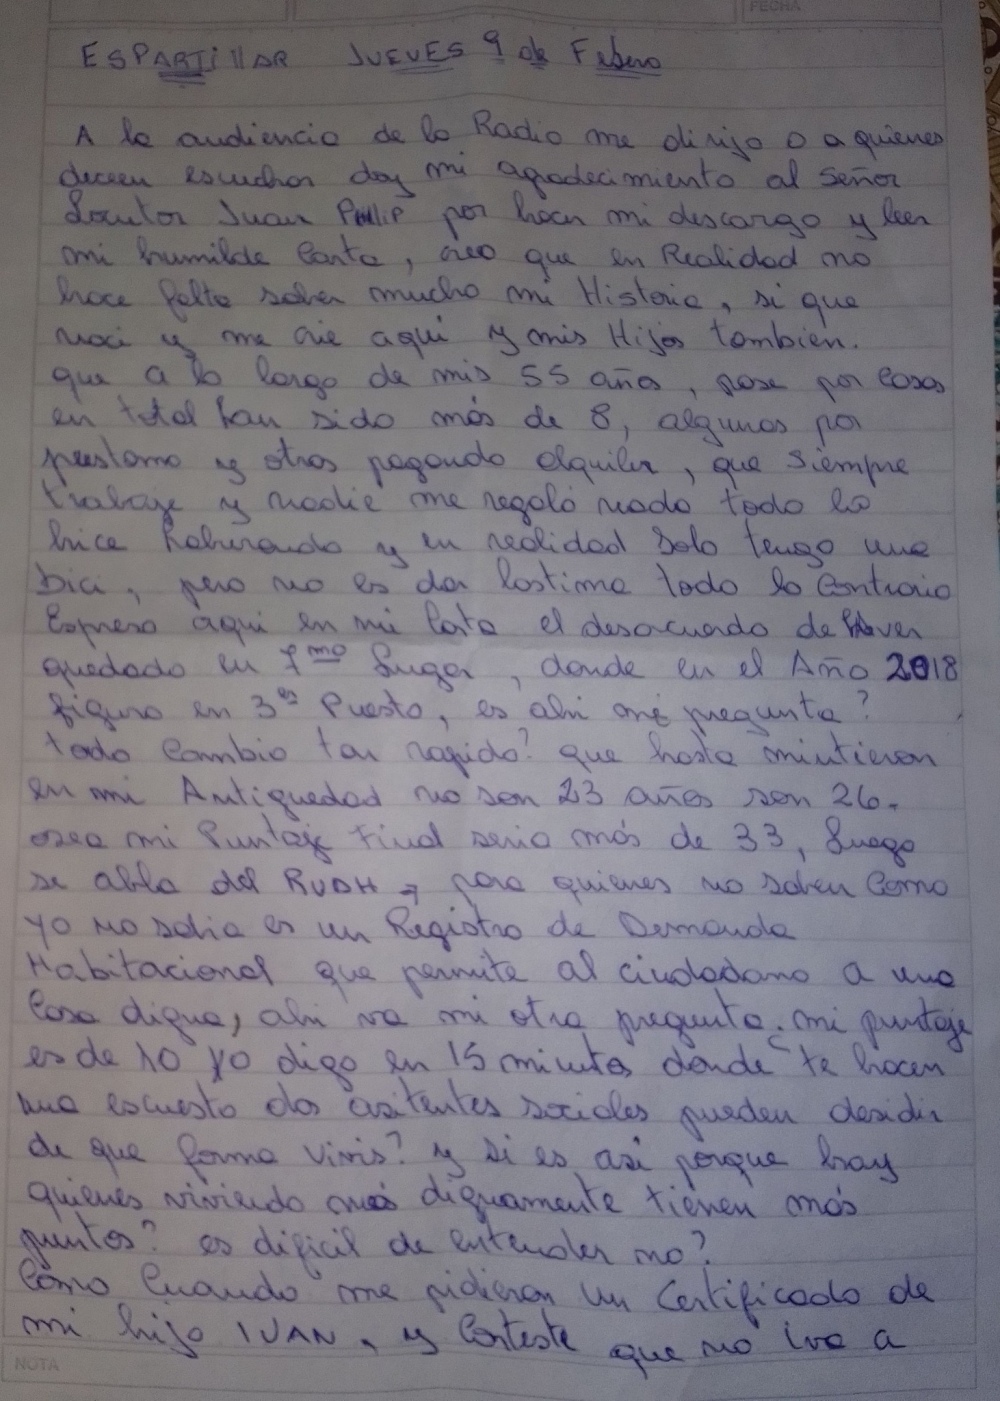 FECHA
ESPARTillAR JUEVES 9 de Febrero
A la audiencia de la Radio me dirijo o a quienes
deceen escuchar doy mi agradecimiento al Señor
Locutor Juan PHiliP por hacer mi descargo y leer
mi humilde Carta, creo que en Realidad no
hace falta saber mucho mi Historia, si que
naci y me crie aqui y mis Hijos tambien.
que a lo largo de mis 55 años, pase por Casas
en total han sido más de 8, algunas por
prestamo y otras pagando alquiler, que Siempre
trabaje y nadie me regaló nada todo lo
hice laburando y en realidad Solo tengo una
bici, pero no es dar lastima todo lo Contrario
Expreso aqui en mi Carta el desacuerdo de Haver
quedado en 7mo Lugar, donde en el Año 2018
figuro en 3er Puesto, es ahi mi pregunta?
todo Cambio tan rapido? que hasta mintieron
en mi Antiguedad no son 23 años son 26.
osea mi Puntaje Final seria más de 33, Luego
se abla del RUDH → para quienes no saben Como
yo no sabia es un Registro de Demanda
Habitacional que permite al ciudadano a una
Casa digna, ahi va mi otra pregunta. mi puntaje
es de 10 yo digo en 15 minutos donde te hacen
una encuesta dos asitentes sociales pueden desidir
de que forma vivis? y si es asi porque hay
quienes viviendo más dignamente tienen más
puntos? es dificil de entender no?
Como Cuando me pidieron un Certificado de
mi hijo IVAN, y Conteste que no iva a
NOTA